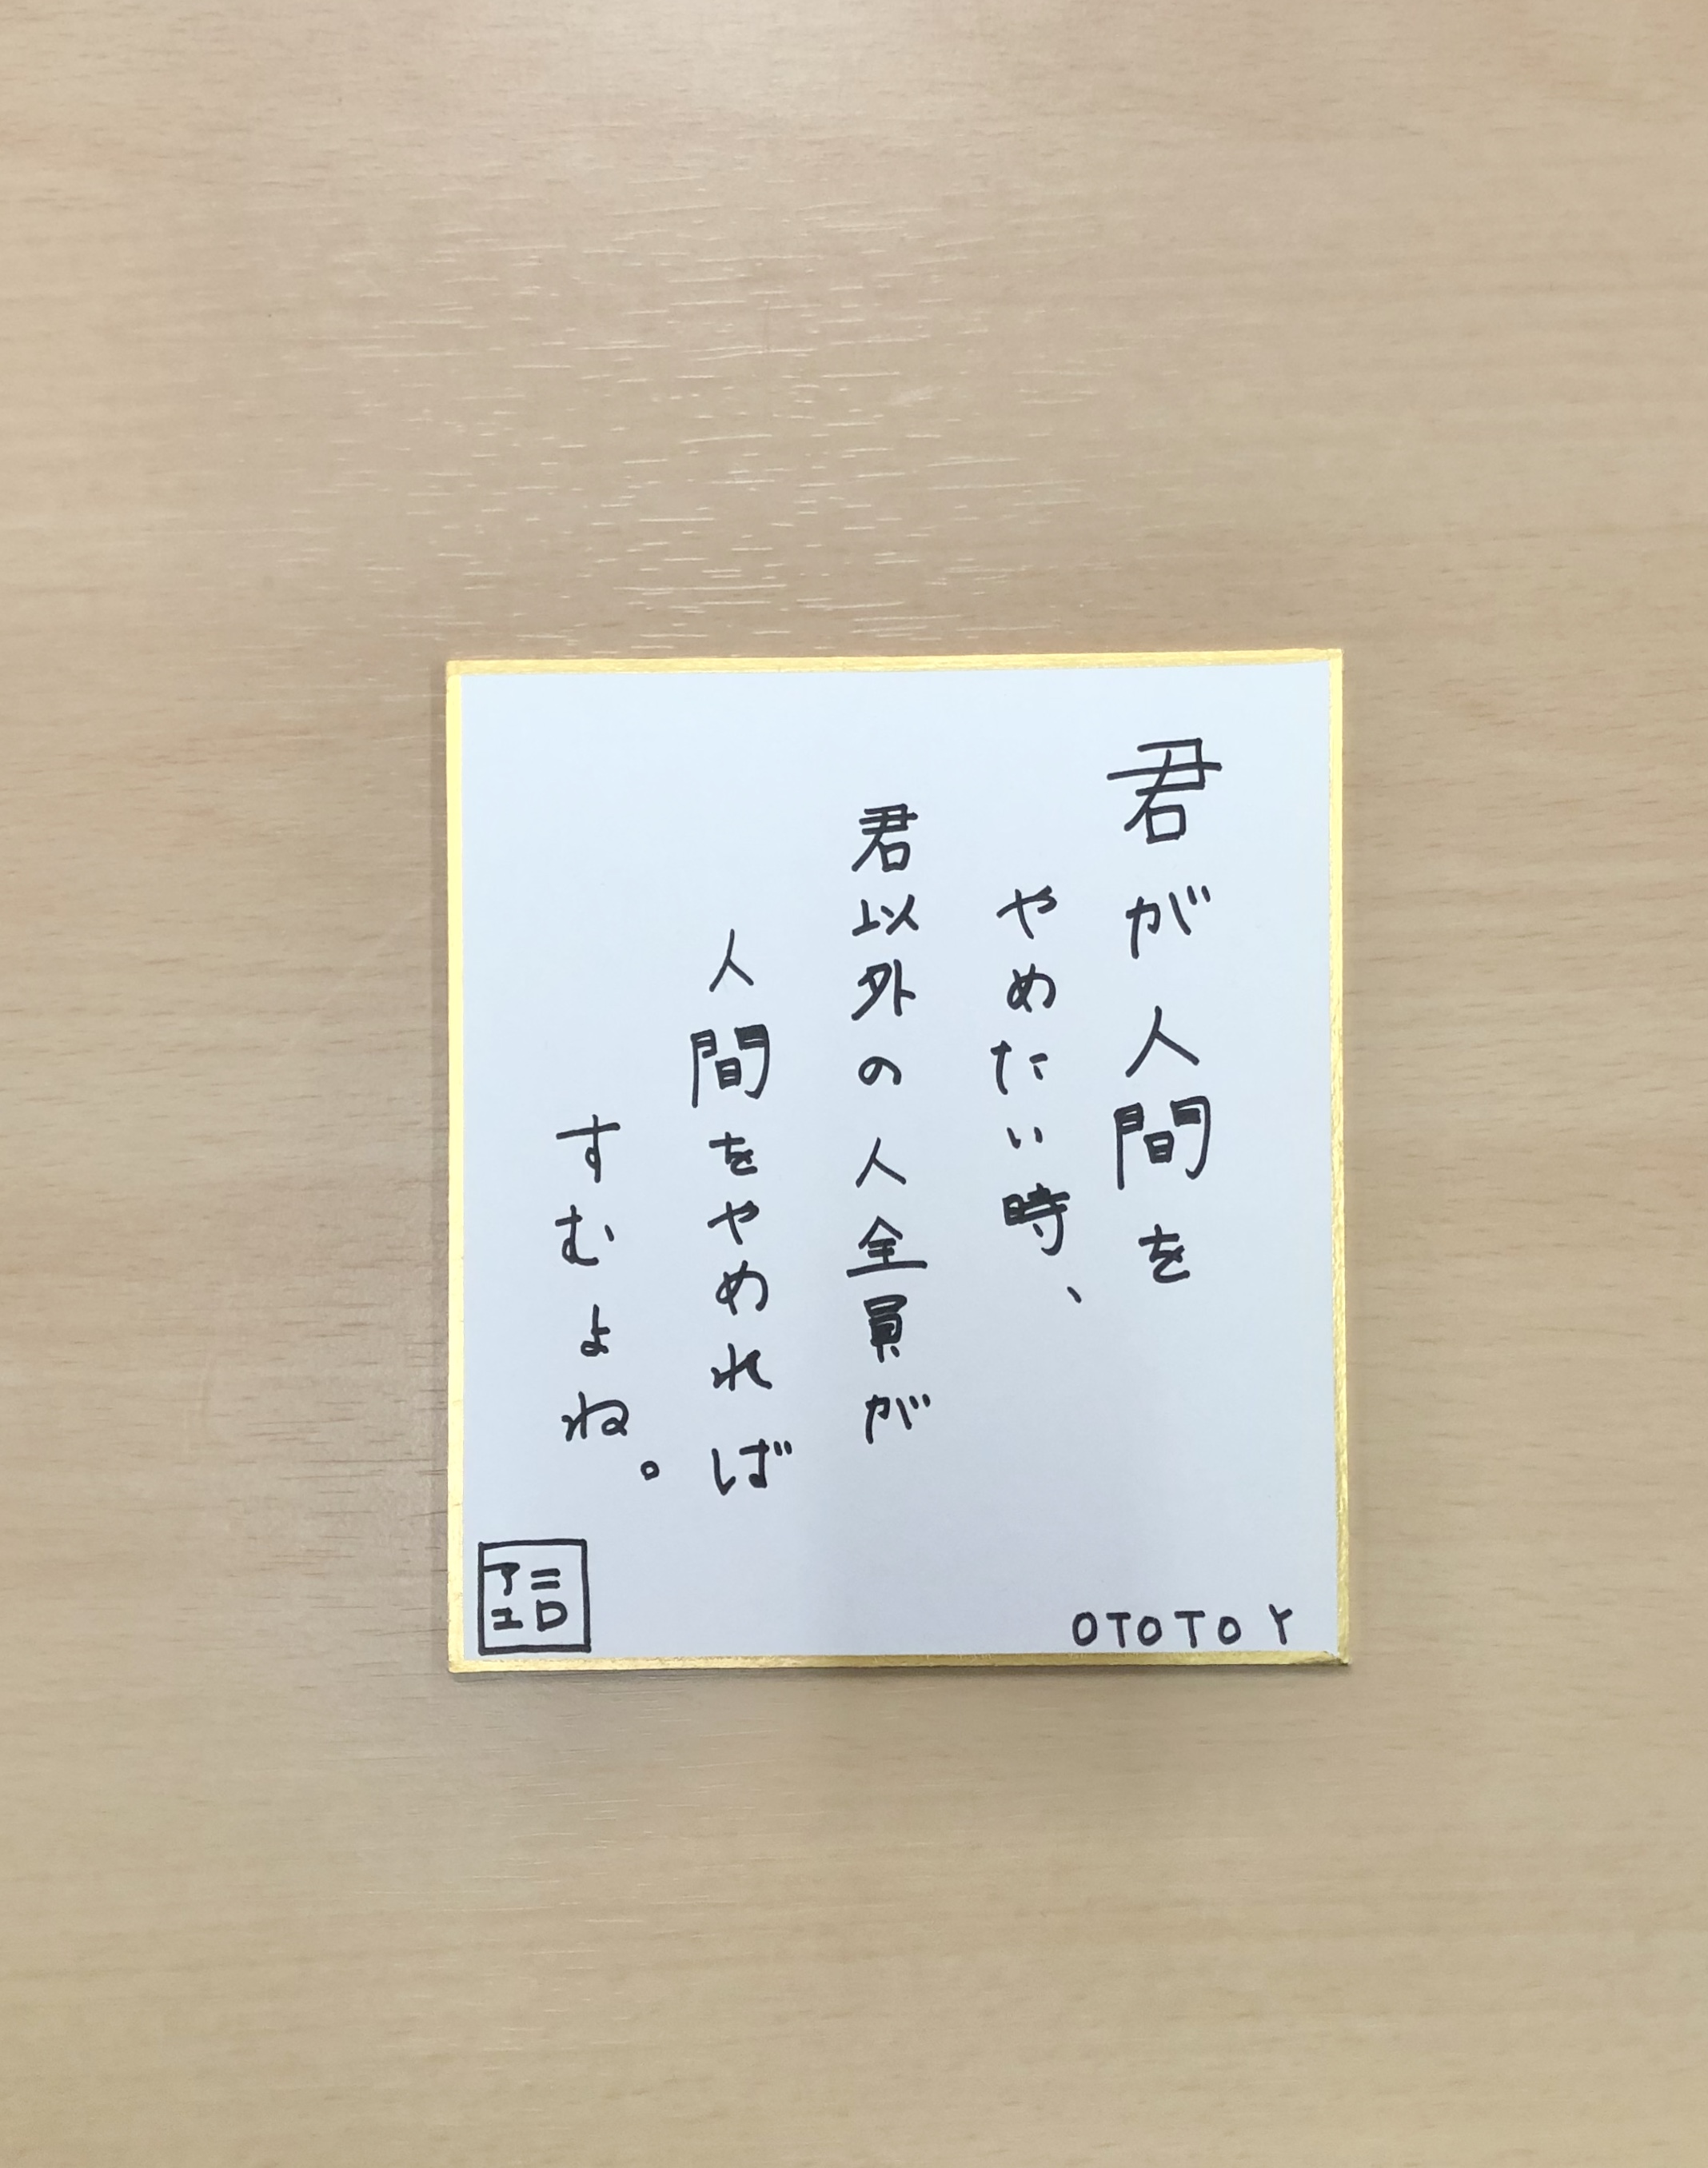 君が人間を
やめたい時、
君以外の人全員が
人間をやめれば
すむよね。
OTOTOY
アニ
ユロ